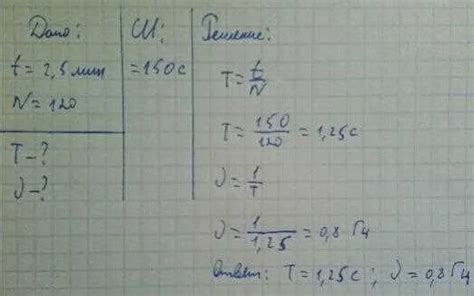 Дано:
t = 2,5 мин
N = 120
T – ?
ν – ?
СИ:
= 150 с
Решение:
T = t/N
T = 150/120 = 1,25 с
ν = 1/T
ν = 1/1,25 = 0,8 Гц
Ответ: T = 1,25 с ; ν = 0,8 Гц